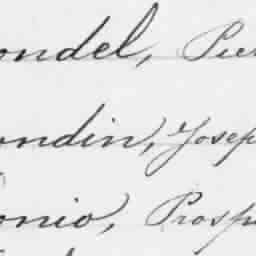 ondel, Pier
ondin, Josep
onio, Prosp